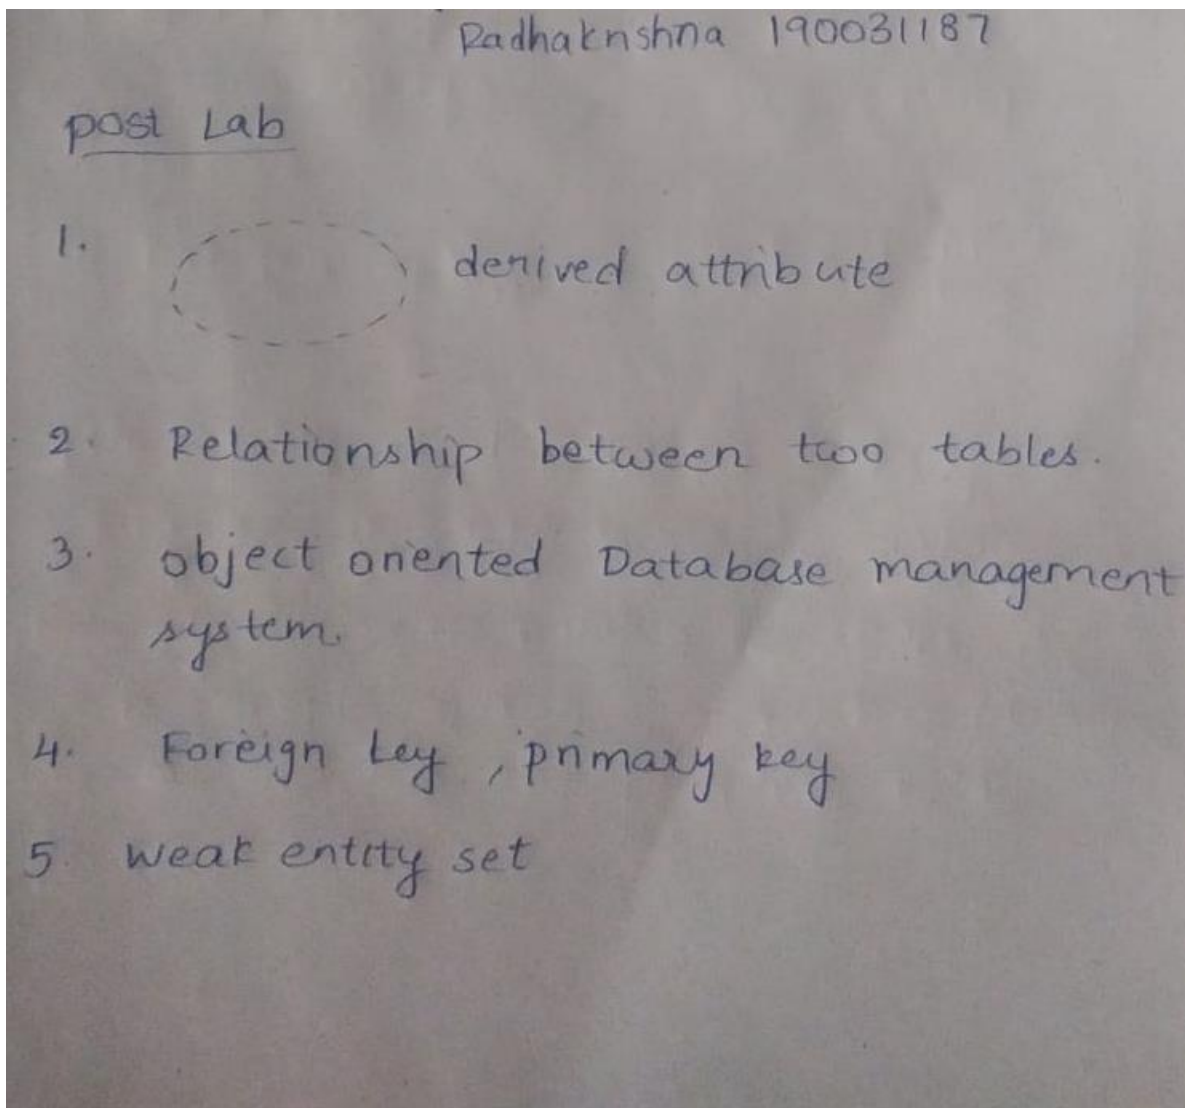 Radhakrishna 190031187
post Lab
1. derived attribute
2. Relationship between two tables.
3. object oriented Database management
system.
4. Foreign key, primary key
5. weak entity set